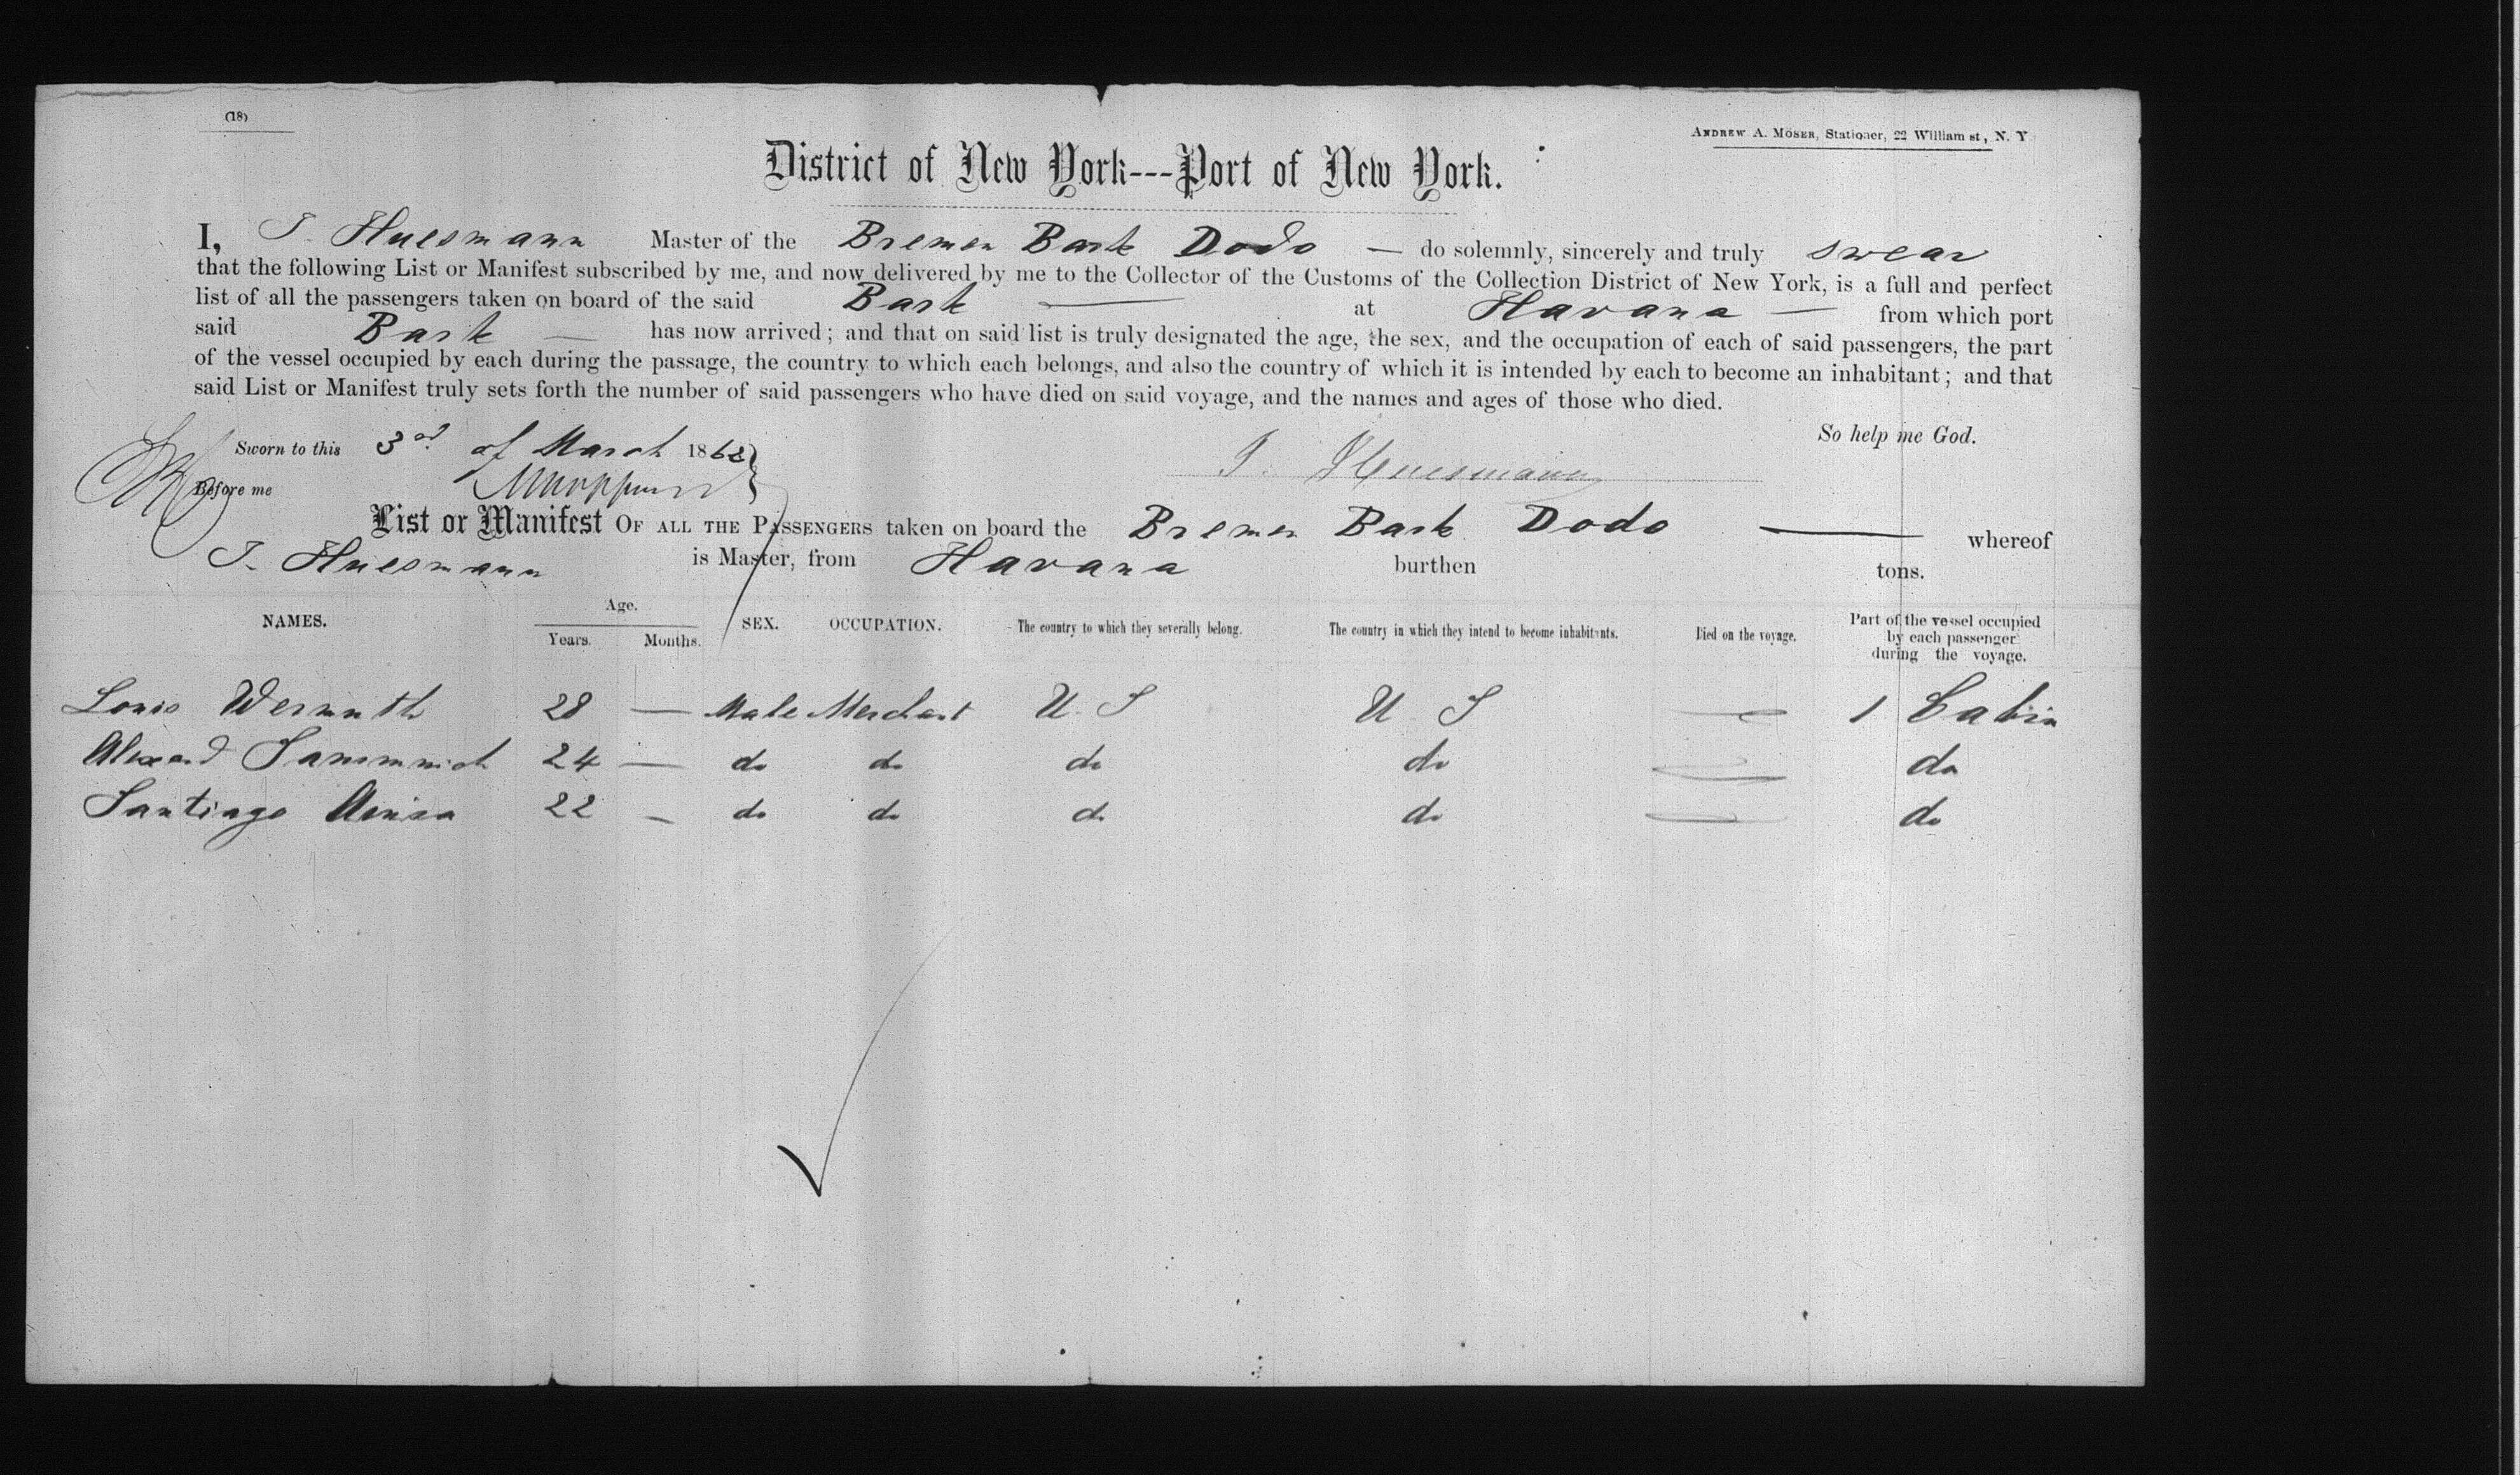 (18)
ANDREW A. MOSER, Stationer, 22 William st, N. Y
District of New York---Port of New York.
I, J. Huesmann Master of the Bremen Bark Dodo — do solemnly, sincerely and truly swear
that the following List or Manifest subscribed by me, and now delivered by me to the Collector of the Customs of the Collection District of New York, is a full and perfect
list of all the passengers taken on board of the said Bark — at Havana — from which port
said Bark — has now arrived; and that on said list is truly designated the age, the sex, and the occupation of each of said passengers, the part
of the vessel occupied by each during the passage, the country to which each belongs, and also the country of which it is intended by each to become an inhabitant; and that
said List or Manifest truly sets forth the number of said passengers who have died on said voyage, and the names and ages of those who died.
So help me God.
Sworn to this 3rd of March 1868
J. Huesmann
Before me
List or Manifest OF ALL THE PASSENGERS taken on board the Bremen Bark Dodo — whereof
J. Huesmann is Master, from Havana burthen tons.
NAMES. Age. Years. Months. SEX. OCCUPATION. The country to which they severally belong. The country in which they intend to become inhabitants. Died on the voyage. Part of the vessel occupied by each passenger during the voyage.
Louis Wermuth 28 — Male Merchant U. S U. S — 1 Cabin
24 — do do do do — do
Santiago 22 — do do do do — do